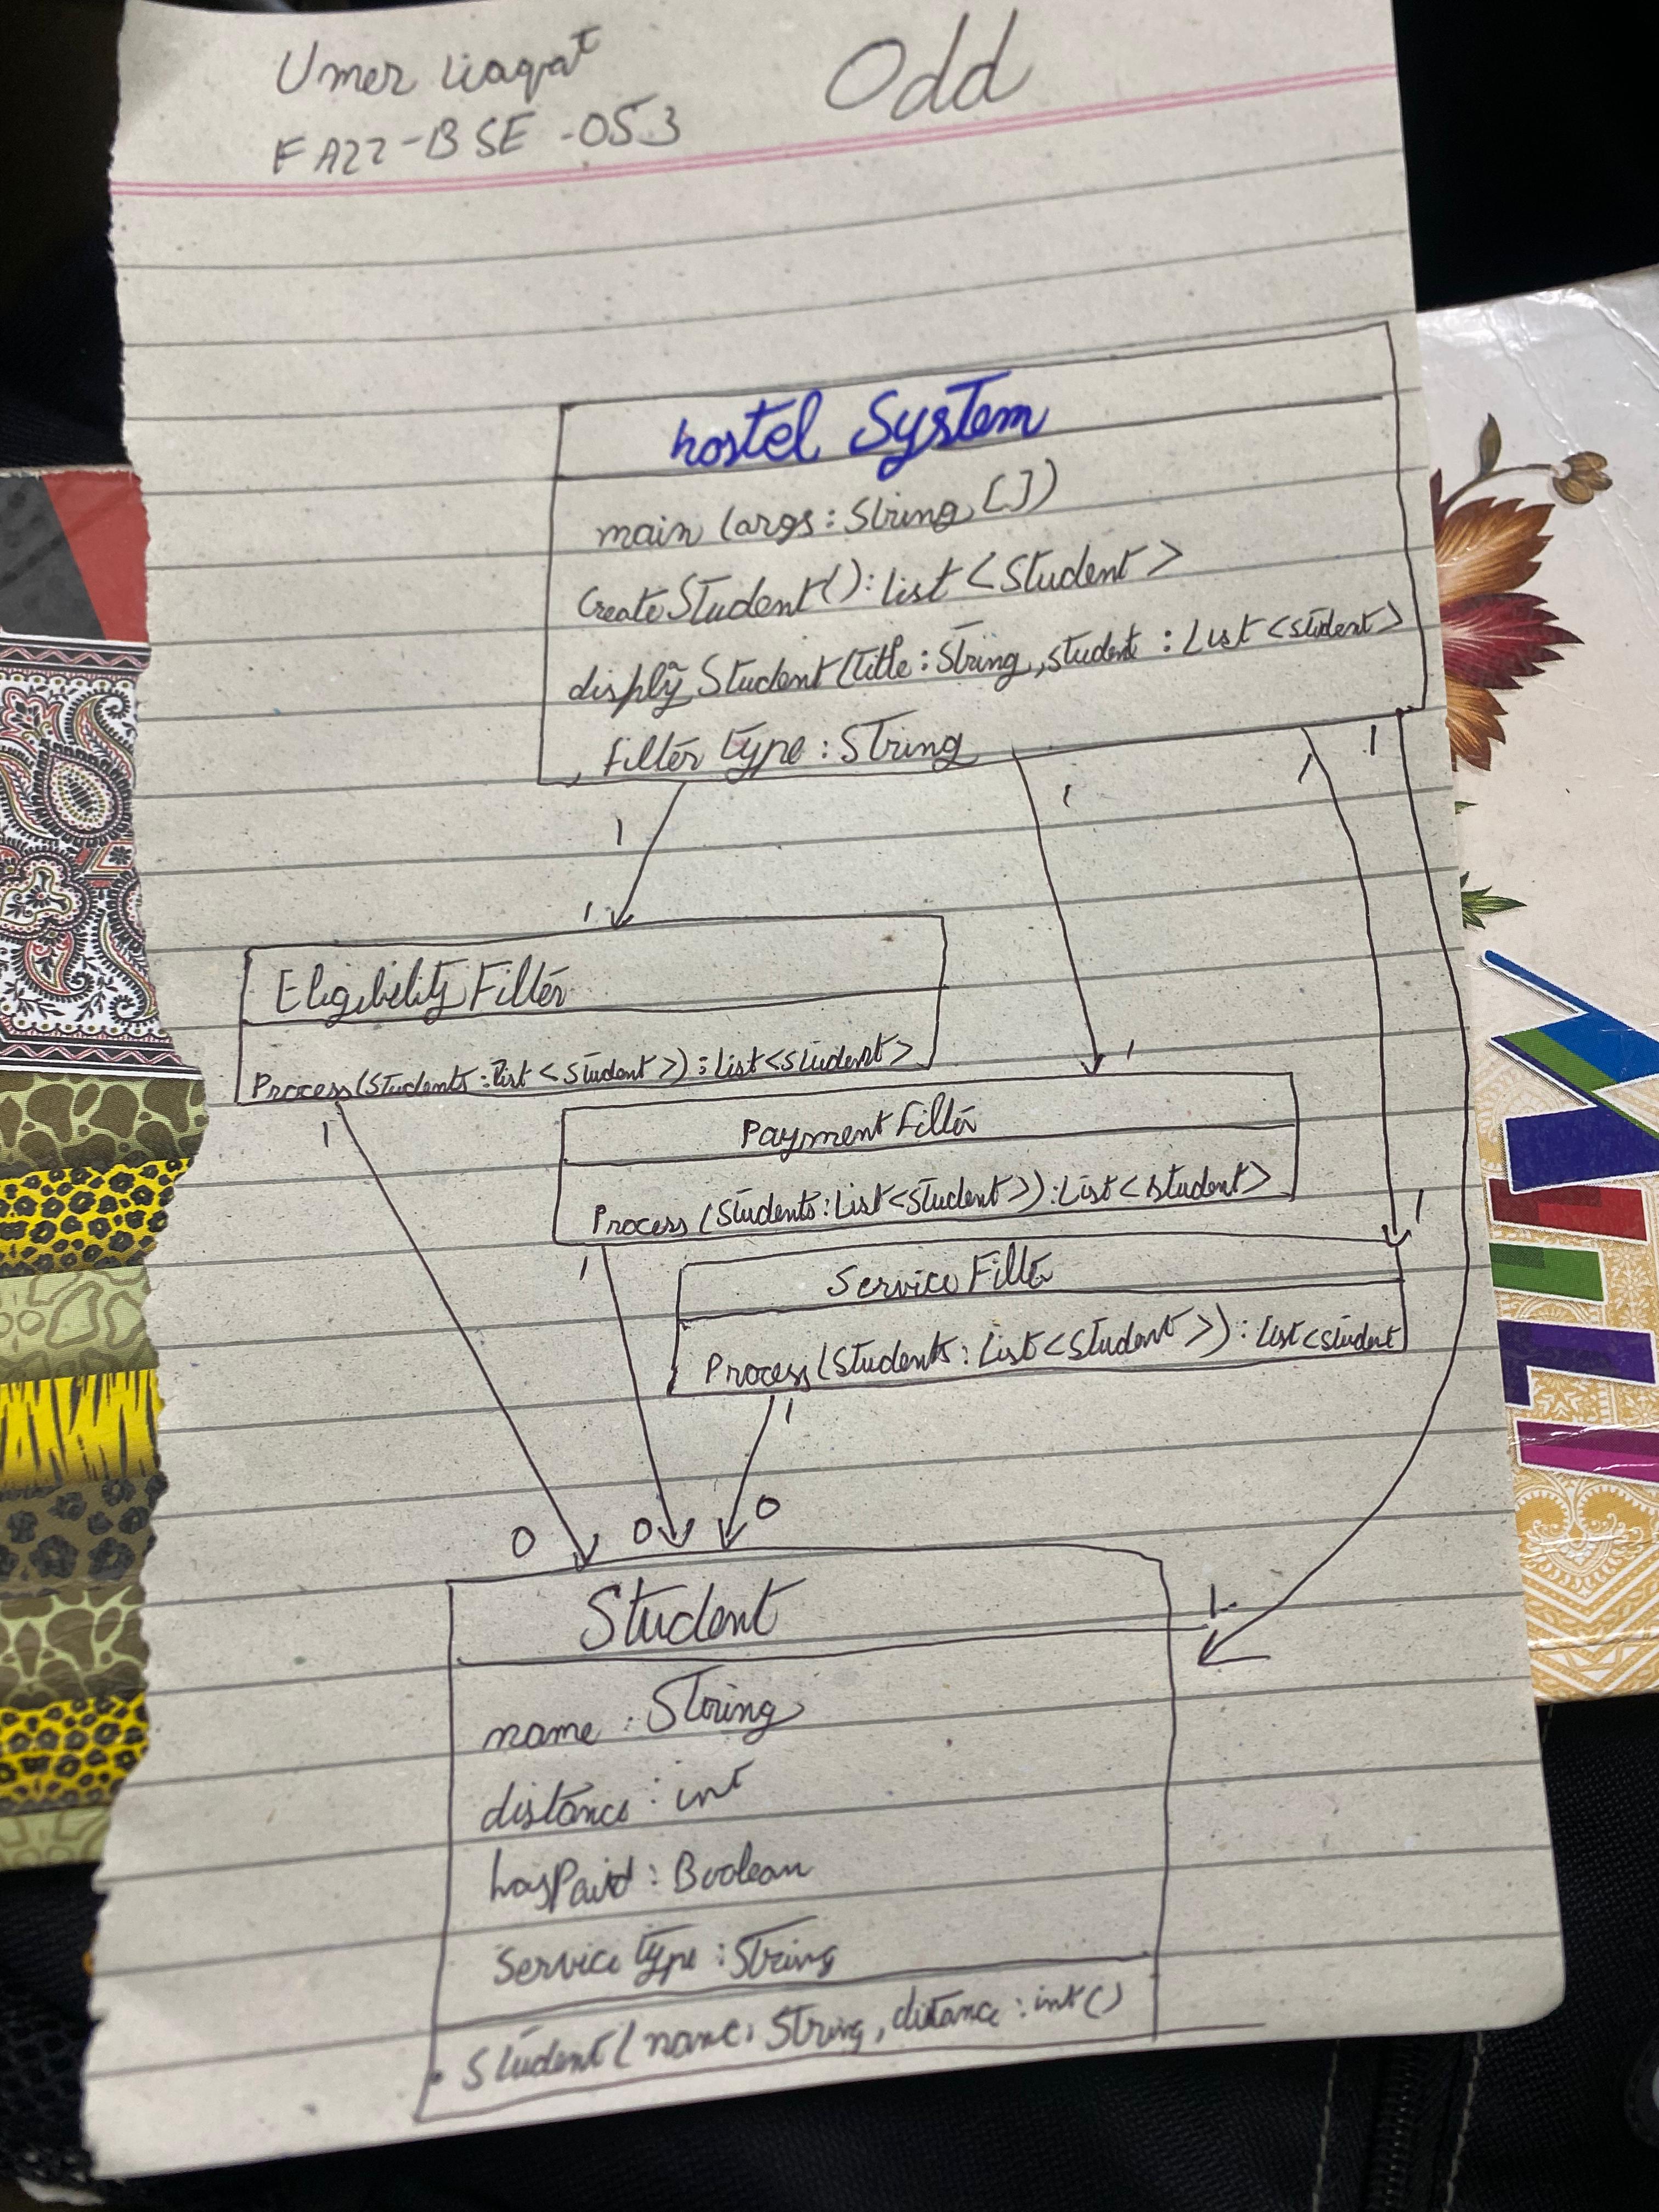 Umer Liaqat
Odd
FA22-BSE-053
hostel System
main (args: String [])
Create Student(): List <Student>
disply Student(title: String, student : List <student>
, Filter type : String
1
1
1
1
1
Eligibility Filter
Process(Students: List <Student>): List <Student>
1
1
Payment Filter
Process (Students: List <Student>): List <Student>
1
1
Service Filter
Process (Students: List <Student>) : List <student
1
0
0
0
1
Student
name : String
distance : int
hasPaid : Boolean
Service type : String
Student ( name, String, distance : int ()